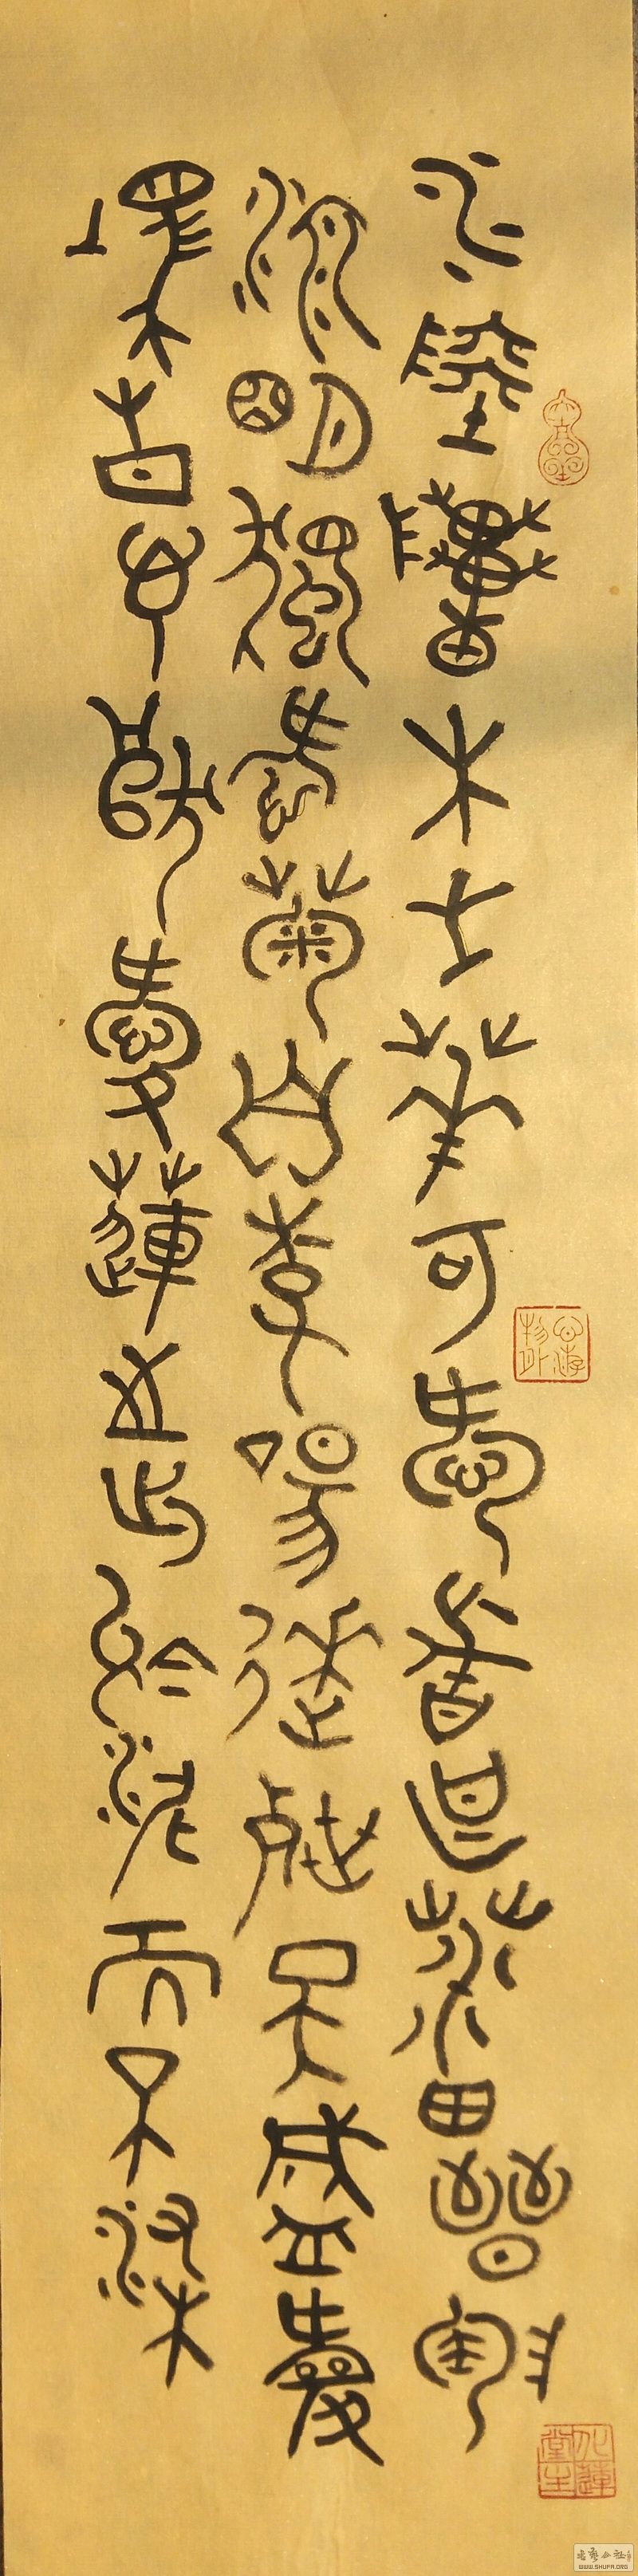 水陸草木之花可愛者甚蕃晉陶
淵明獨愛菊自李唐來世人盛愛
牡丹予獨愛蓮之出於泥而不染
心游物外
WWW.SHUFA.ORG